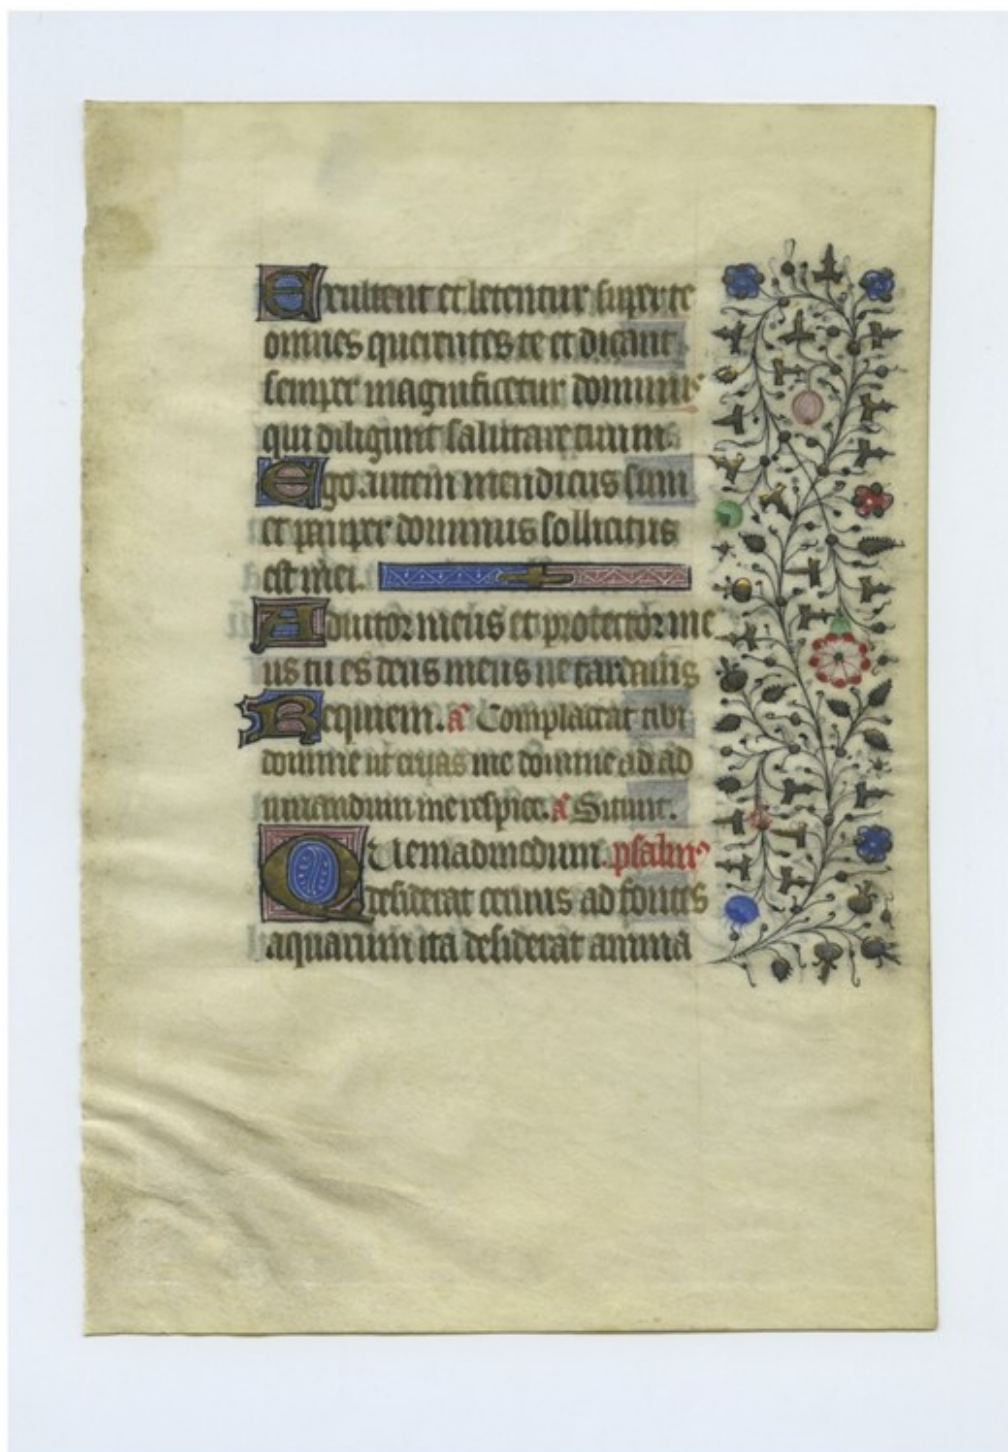 Exultent et letentur super te
omnes querentes te et dicant
semper magnificetur dominus
qui diligunt salutare tuum
Ego autem mendicus sum
et pauper dominus sollicitus
est mei.
Adiutor meus et protector me
us tu es deus meus ne tardaveris
Requiem. a Complaceat tibi
domine ut eripias me domine ad ad
iuvandum me respice. a Sitivit.
Quemadmodum. psalmus
desiderat cervus ad fontes
aquarum ita desiderat anima